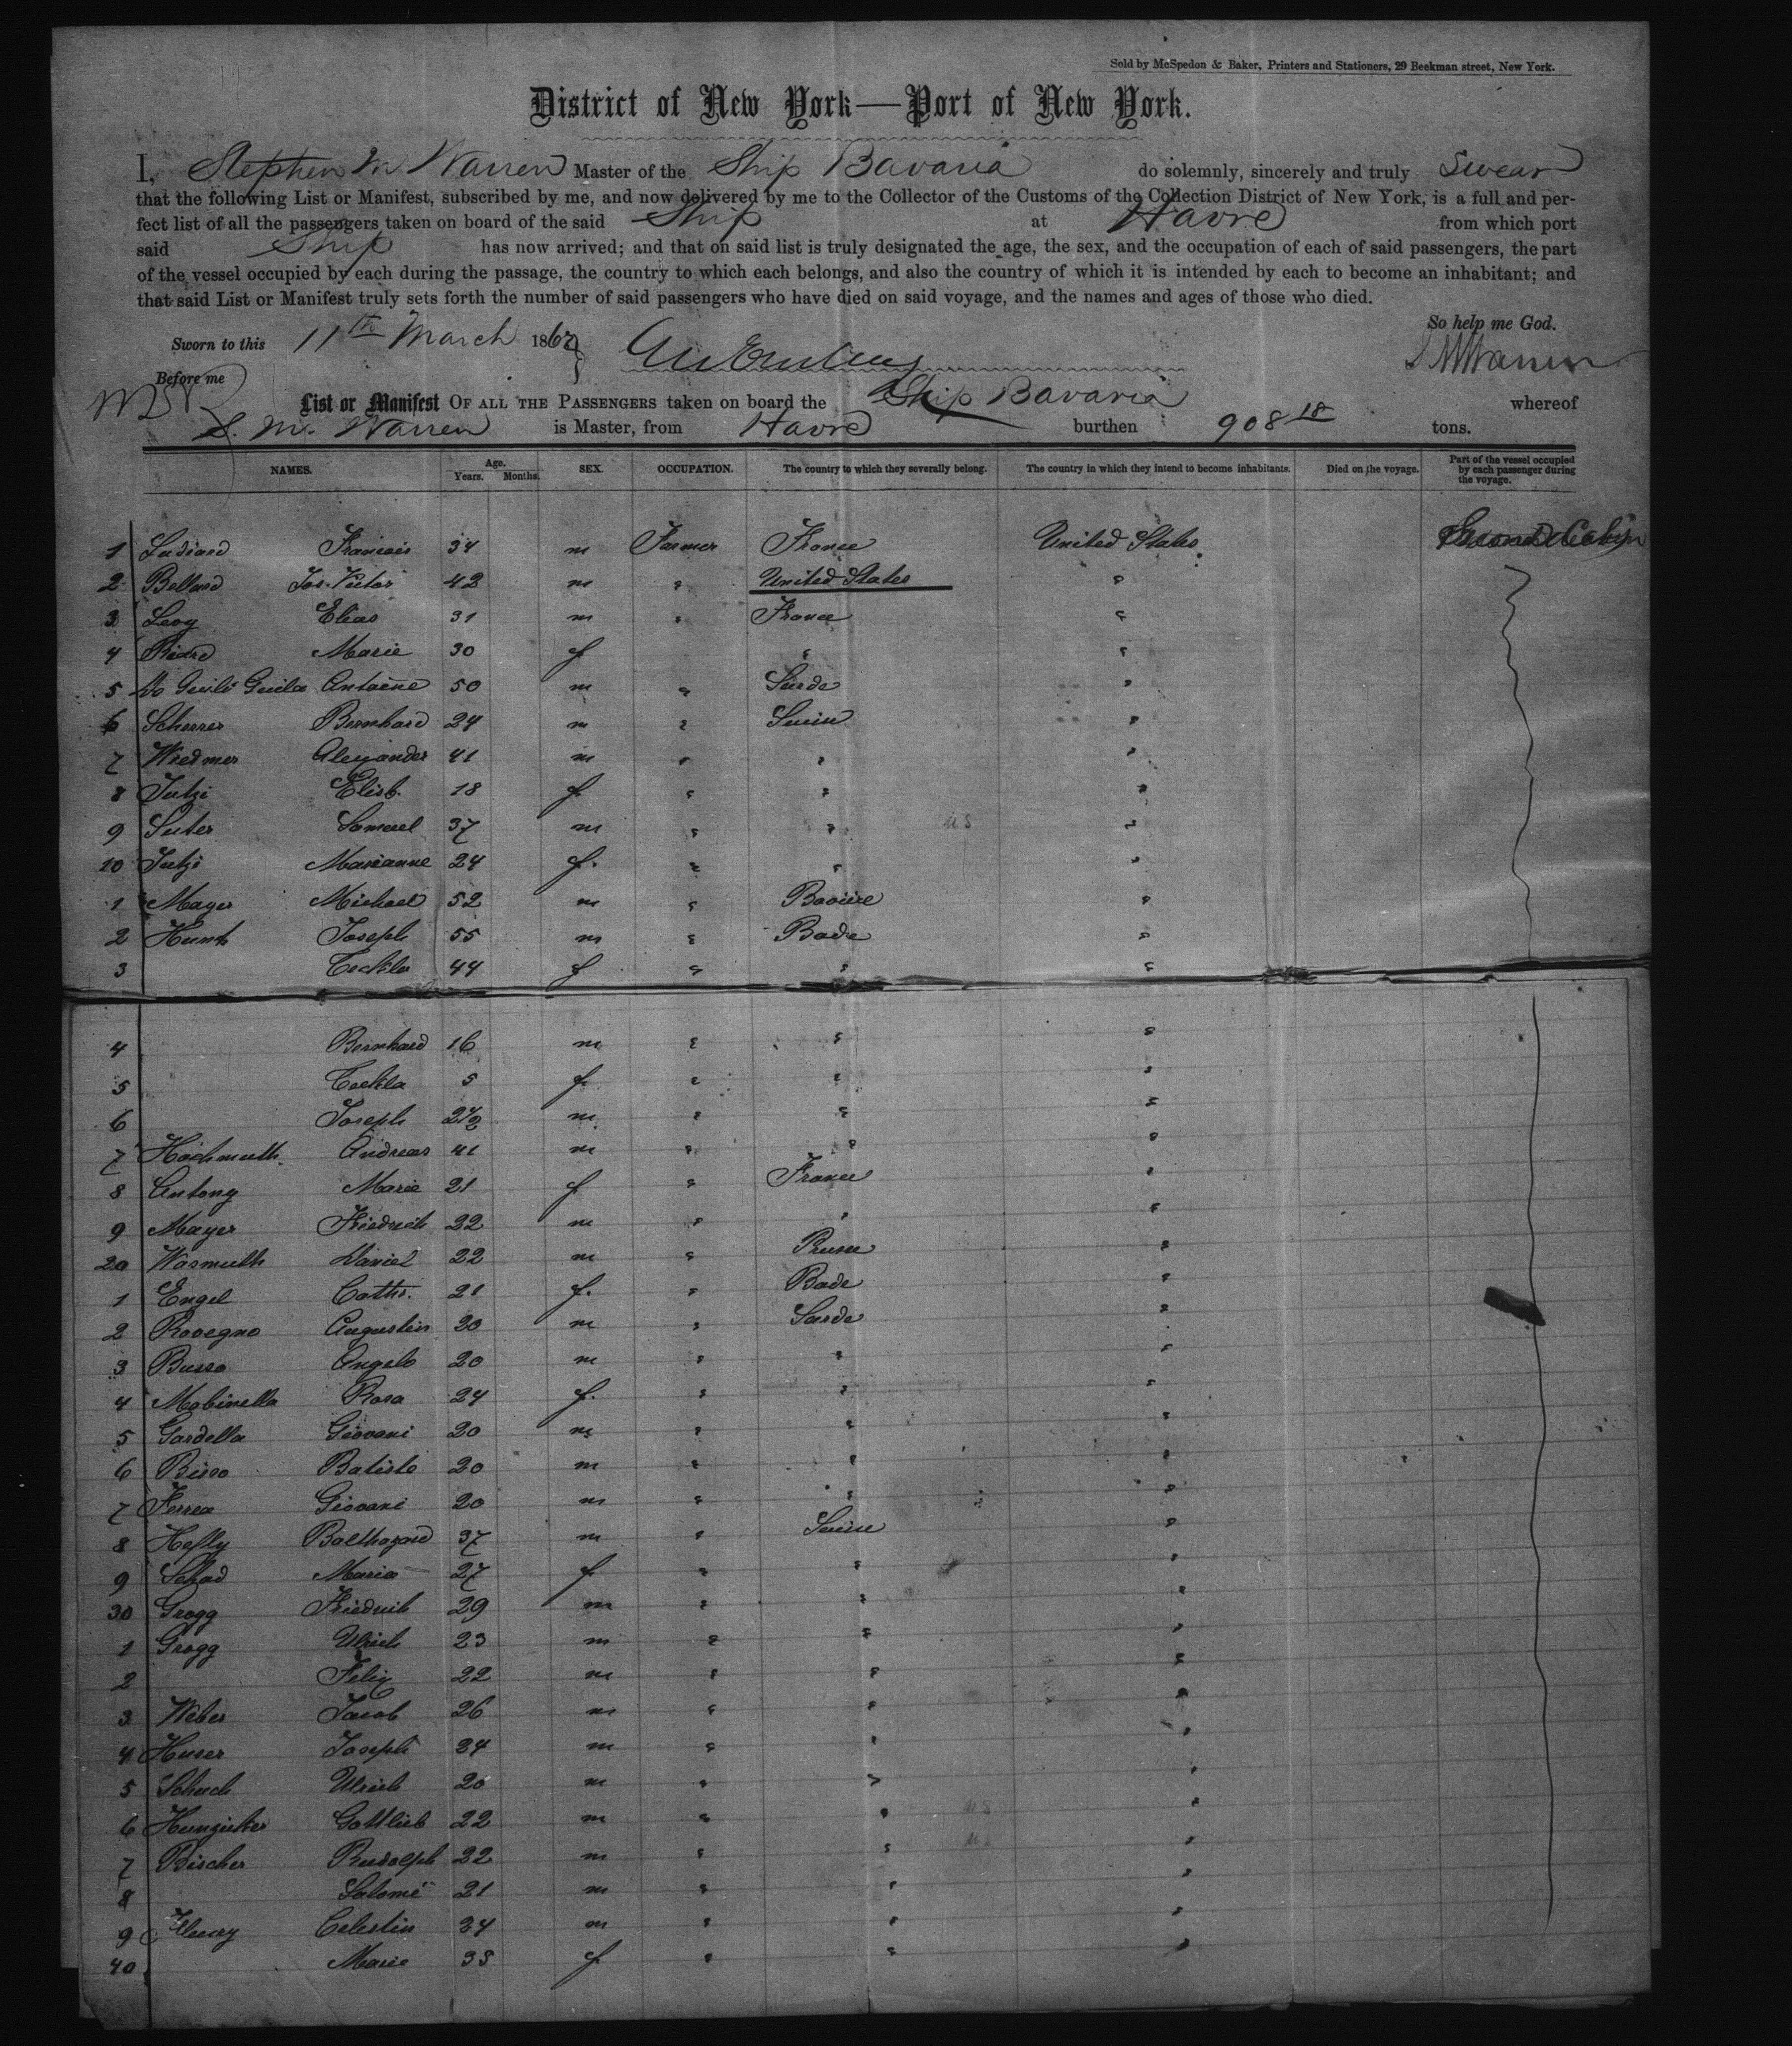 Sold by McSpedon & Baker, Printers and Stationers, 29 Beekman street, New York.
District of New York—Port of New York.
I, Stephen M Warren Master of the Ship Bavaria do solemnly, sincerely and truly Swear
that the following List or Manifest, subscribed by me, and now delivered by me to the Collector of the Customs of the Collection District of New York, is a full and per-
fect list of all the passengers taken on board of the said Ship at Havre from which port
said Ship has now arrived; and that on said list is truly designated the age, the sex, and the occupation of each of said passengers, the part
of the vessel occupied by each during the passage, the country to which each belongs, and also the country of which it is intended by each to become an inhabitant; and
that said List or Manifest truly sets forth the number of said passengers who have died on said voyage, and the names and ages of those who died.
So help me God.
Sworn to this 11th March 1862
S M Warren
Before me
List or Manifest OF ALL THE PASSENGERS taken on board the Ship Bavaria whereof
S. M. Warren is Master, from Havre burthen 908 18 tons.
NAMES. Age. Years. Months. SEX. OCCUPATION. The country to which they severally belong. The country in which they intend to become inhabitants. Died on the voyage. Part of the vessel occupied by each passenger during the voyage.
1 Francois 34 m Farmer France United States Second Cabin
2 Bellard Jos. Victor 42 m " United States "
3 Levy Elias 31 m " France "
4 Marie 30 f " "
5 Antoine 50 m " Sarde "
6 Scherrer Bernhard 24 m " Suisse "
7 Wiedmer Alexander 41 m " " "
8 Jutzi Elisb. 18 f. " " "
9 Suter Samuel 37 m " " U S "
10 Jutzi Marianne 24 f. " " "
1 Mayer Michael 52 m " Baviere "
2 Joseph 55 m " Bade "
3 Teckla 44 f " " "
4 Bernhard 16 m " " "
5 Teckla 5 f. " " "
6 Joseph 2½ m " " "
7 Hochmuth. Andreas 41 m " " "
8 Antony Marie 21 f " France "
9 Mayer Friedrich 22 m " " "
20 Wasmuth Daniel 22 m " Prusse "
1 Engel Cathr. 21 f. " Bade "
2 Rovegno Augustin 20 m " Sarde "
3 Busso Angelo 20 m " " "
4 Mobinella Rosa 24 f. " " "
5 Gardella Giovani 20 m " " "
6 Bisso Batiste 20 m " " "
7 Ferrea Giovani 20 m " " "
8 Hefly Balthazard 37 m " Suisse "
9 Schad Maria 27 f " " "
30 Grogg Friedrich 29 m " " "
1 Grogg Ulrich 23 m " " "
2 Felix 22 m " " "
3 Weber Jacob 26 m " " "
4 Huser Joseph 24 m " " "
5 Schuch Ulrich 20 m " " "
6 Hunziker Gottlieb 22 m " " U S "
7 Bischer Rudolph 22 m " " "
8 Salomé 21 m " " "
9 Fleury Celestin 34 m " " "
40 Marie 33 f " " "